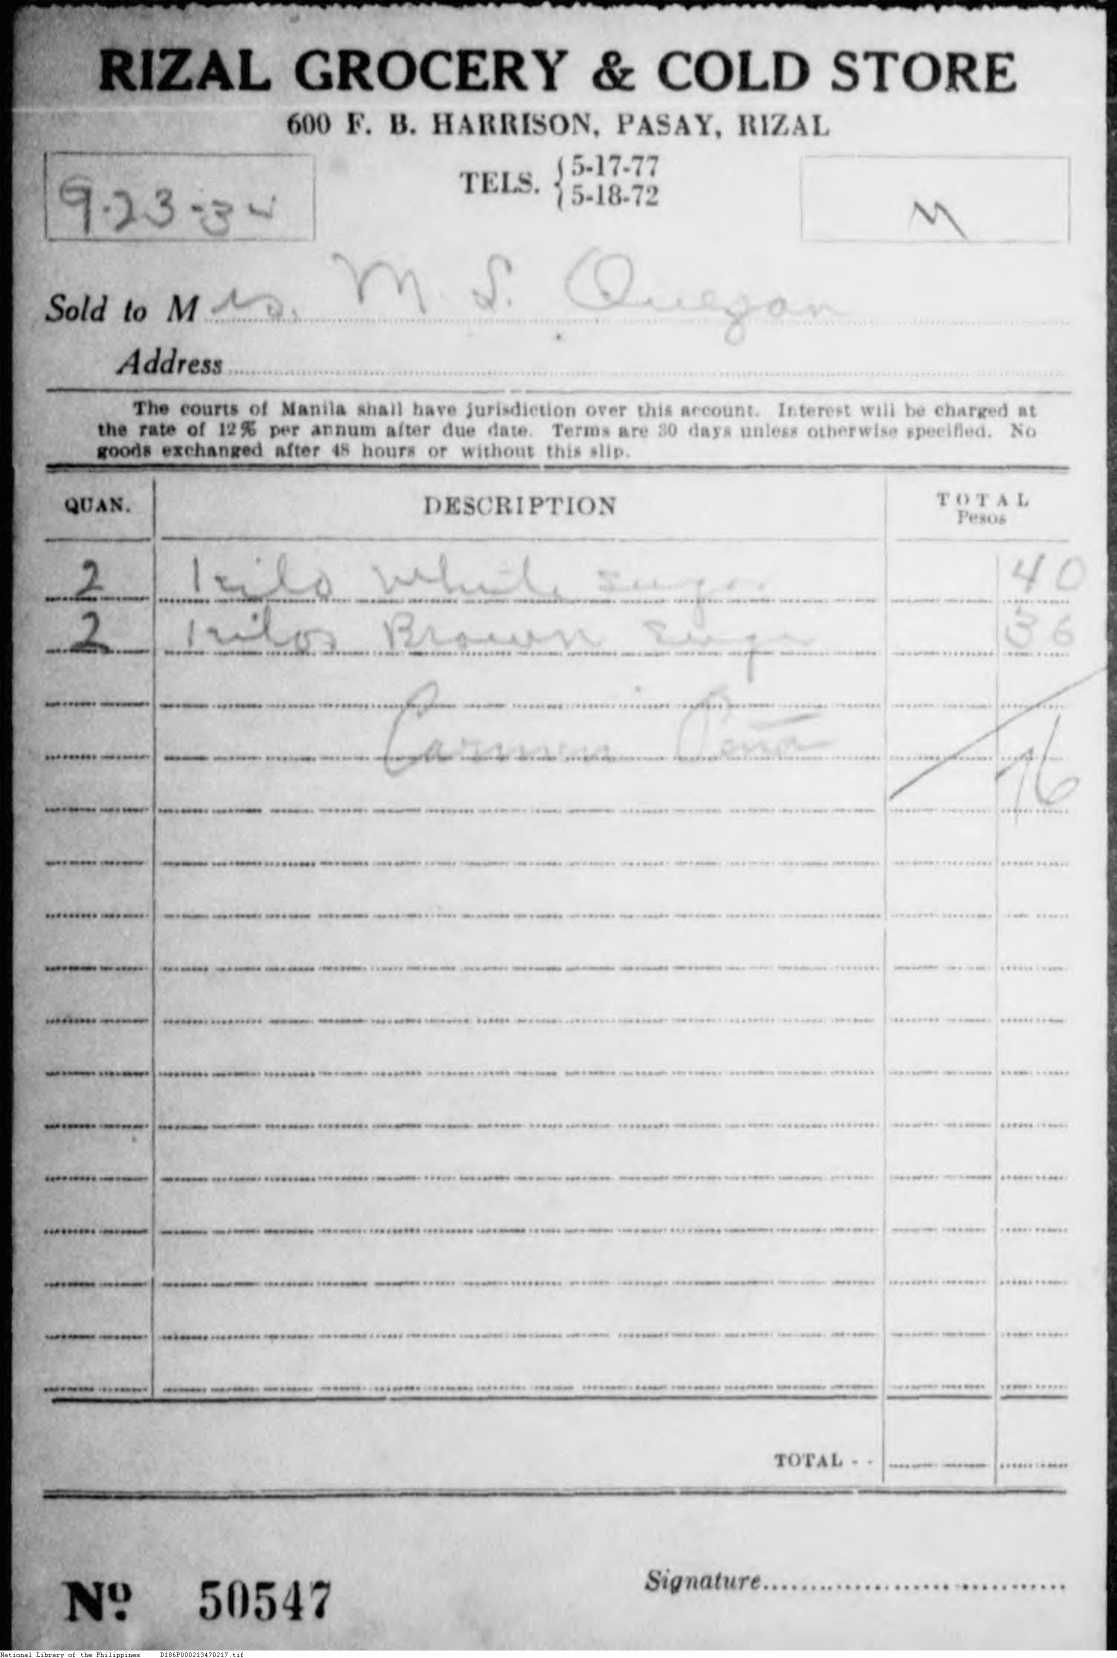 RIZAL GROCERY & COLD STORE
600 F. B. HARRISON, PASAY, RIZAL
TELS. { 5-17-77
5-18-72
9-23-34
M
Sold to Mrs. M. S. Quezon
Address
The courts of Manila shall have jurisdiction over this account. Interest will be charged at
the rate of 12% per annum after due date. Terms are 30 days unless otherwise specified. No
goods exchanged after 48 hours or without this slip.
QUAN. DESCRIPTION TOTAL
Pesos
2 kilo white sugar 40
2 kilos Brown sugar 36
Carmen Peña
76
TOTAL - -
Nº 50547
Signature
National Library of the Philippines D186P000213470217.tif